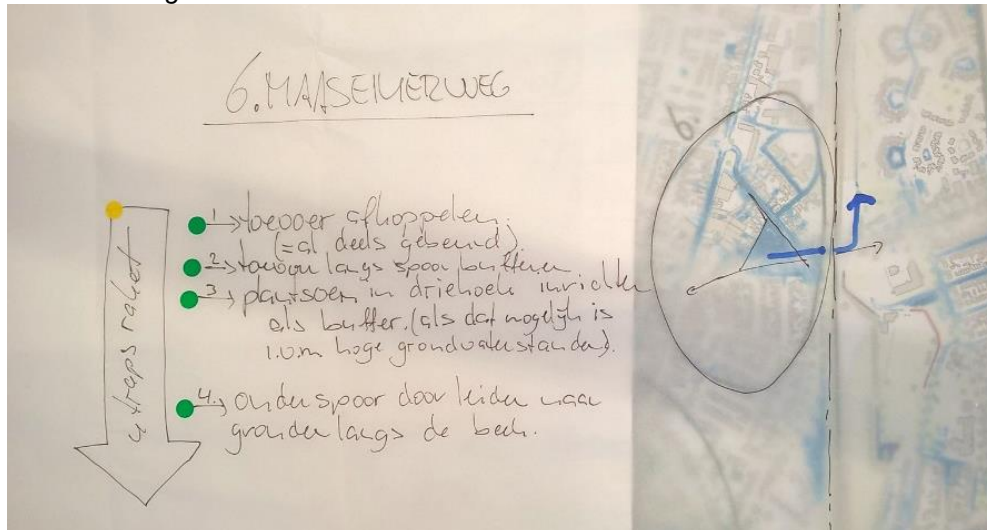 6. MAASEIKERWEG
1 → toevoer afkoppelen.
(= al deels gebeurd).
2 → langs spoor bufferen
3 → plantsoen in driehoek inrichten
als buffer. (als dat mogelijk is
i.v.m hoge grondwaterstanden).
4. → onder spoor door leiden naar
gronden langs de beek.
4 traps raket
6.